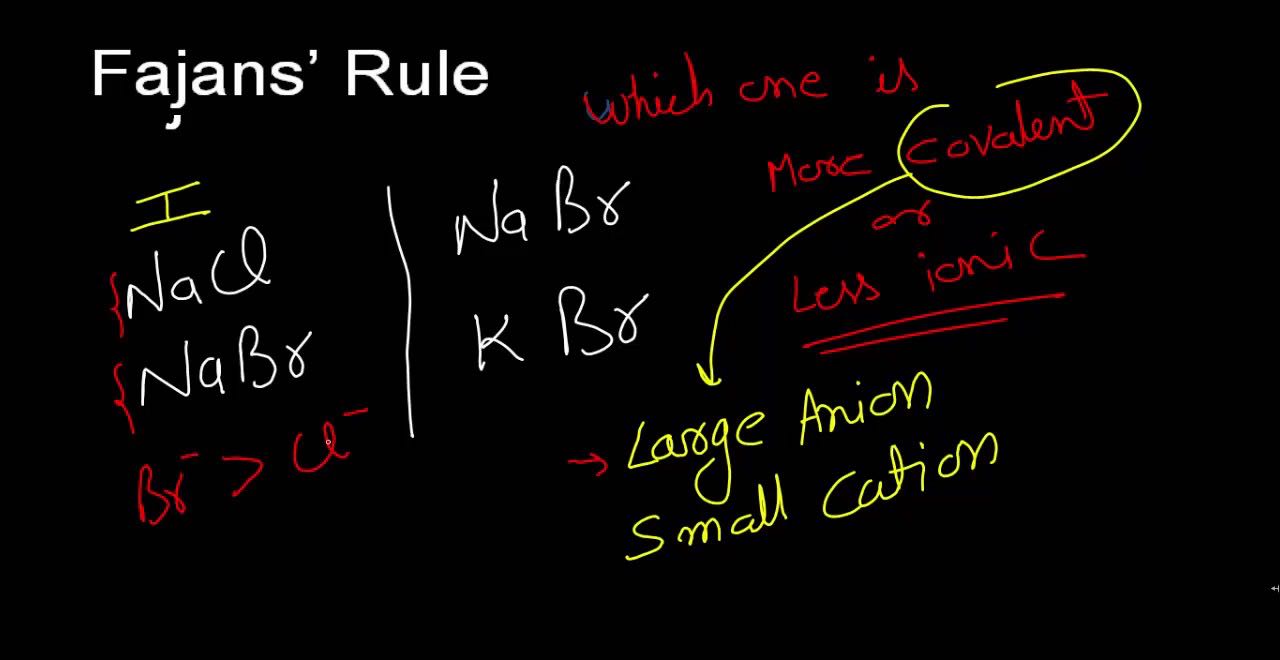 Fajans' Rule
which one is
More covalent
or
Less ionic
I
NaCl
NaBr
Br⁻ > Cl⁻
NaBr
KBr
→ Large Anion
Small Cation